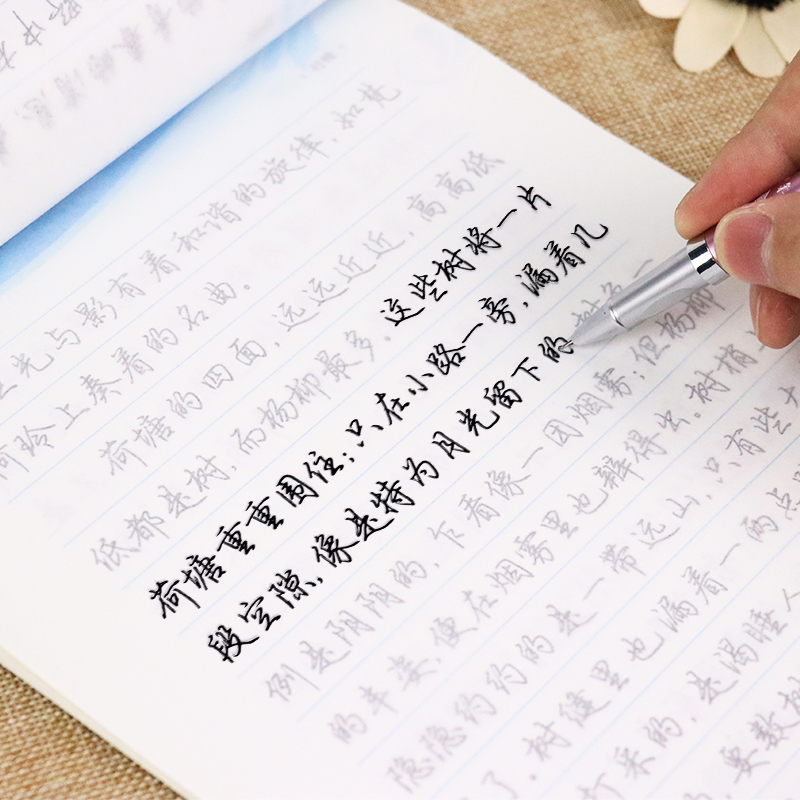 光与影有着和谐的旋律，如梵
玲上奏着的名曲。
荷塘的四面，远远近近，高高低
低都是树，而杨柳最多。这些树将一片
荷塘重重围住；只在小路一旁，漏着几
段空隙，像是特为月光留下的 树色一
例是阴阴的，乍看像一团烟雾；但杨柳
的丰姿，便在烟雾里也辨得出。树梢
隐隐约约的是一带远山，只有些大
了。树缝里也漏着一两点
打采的，是渴睡人
要数树